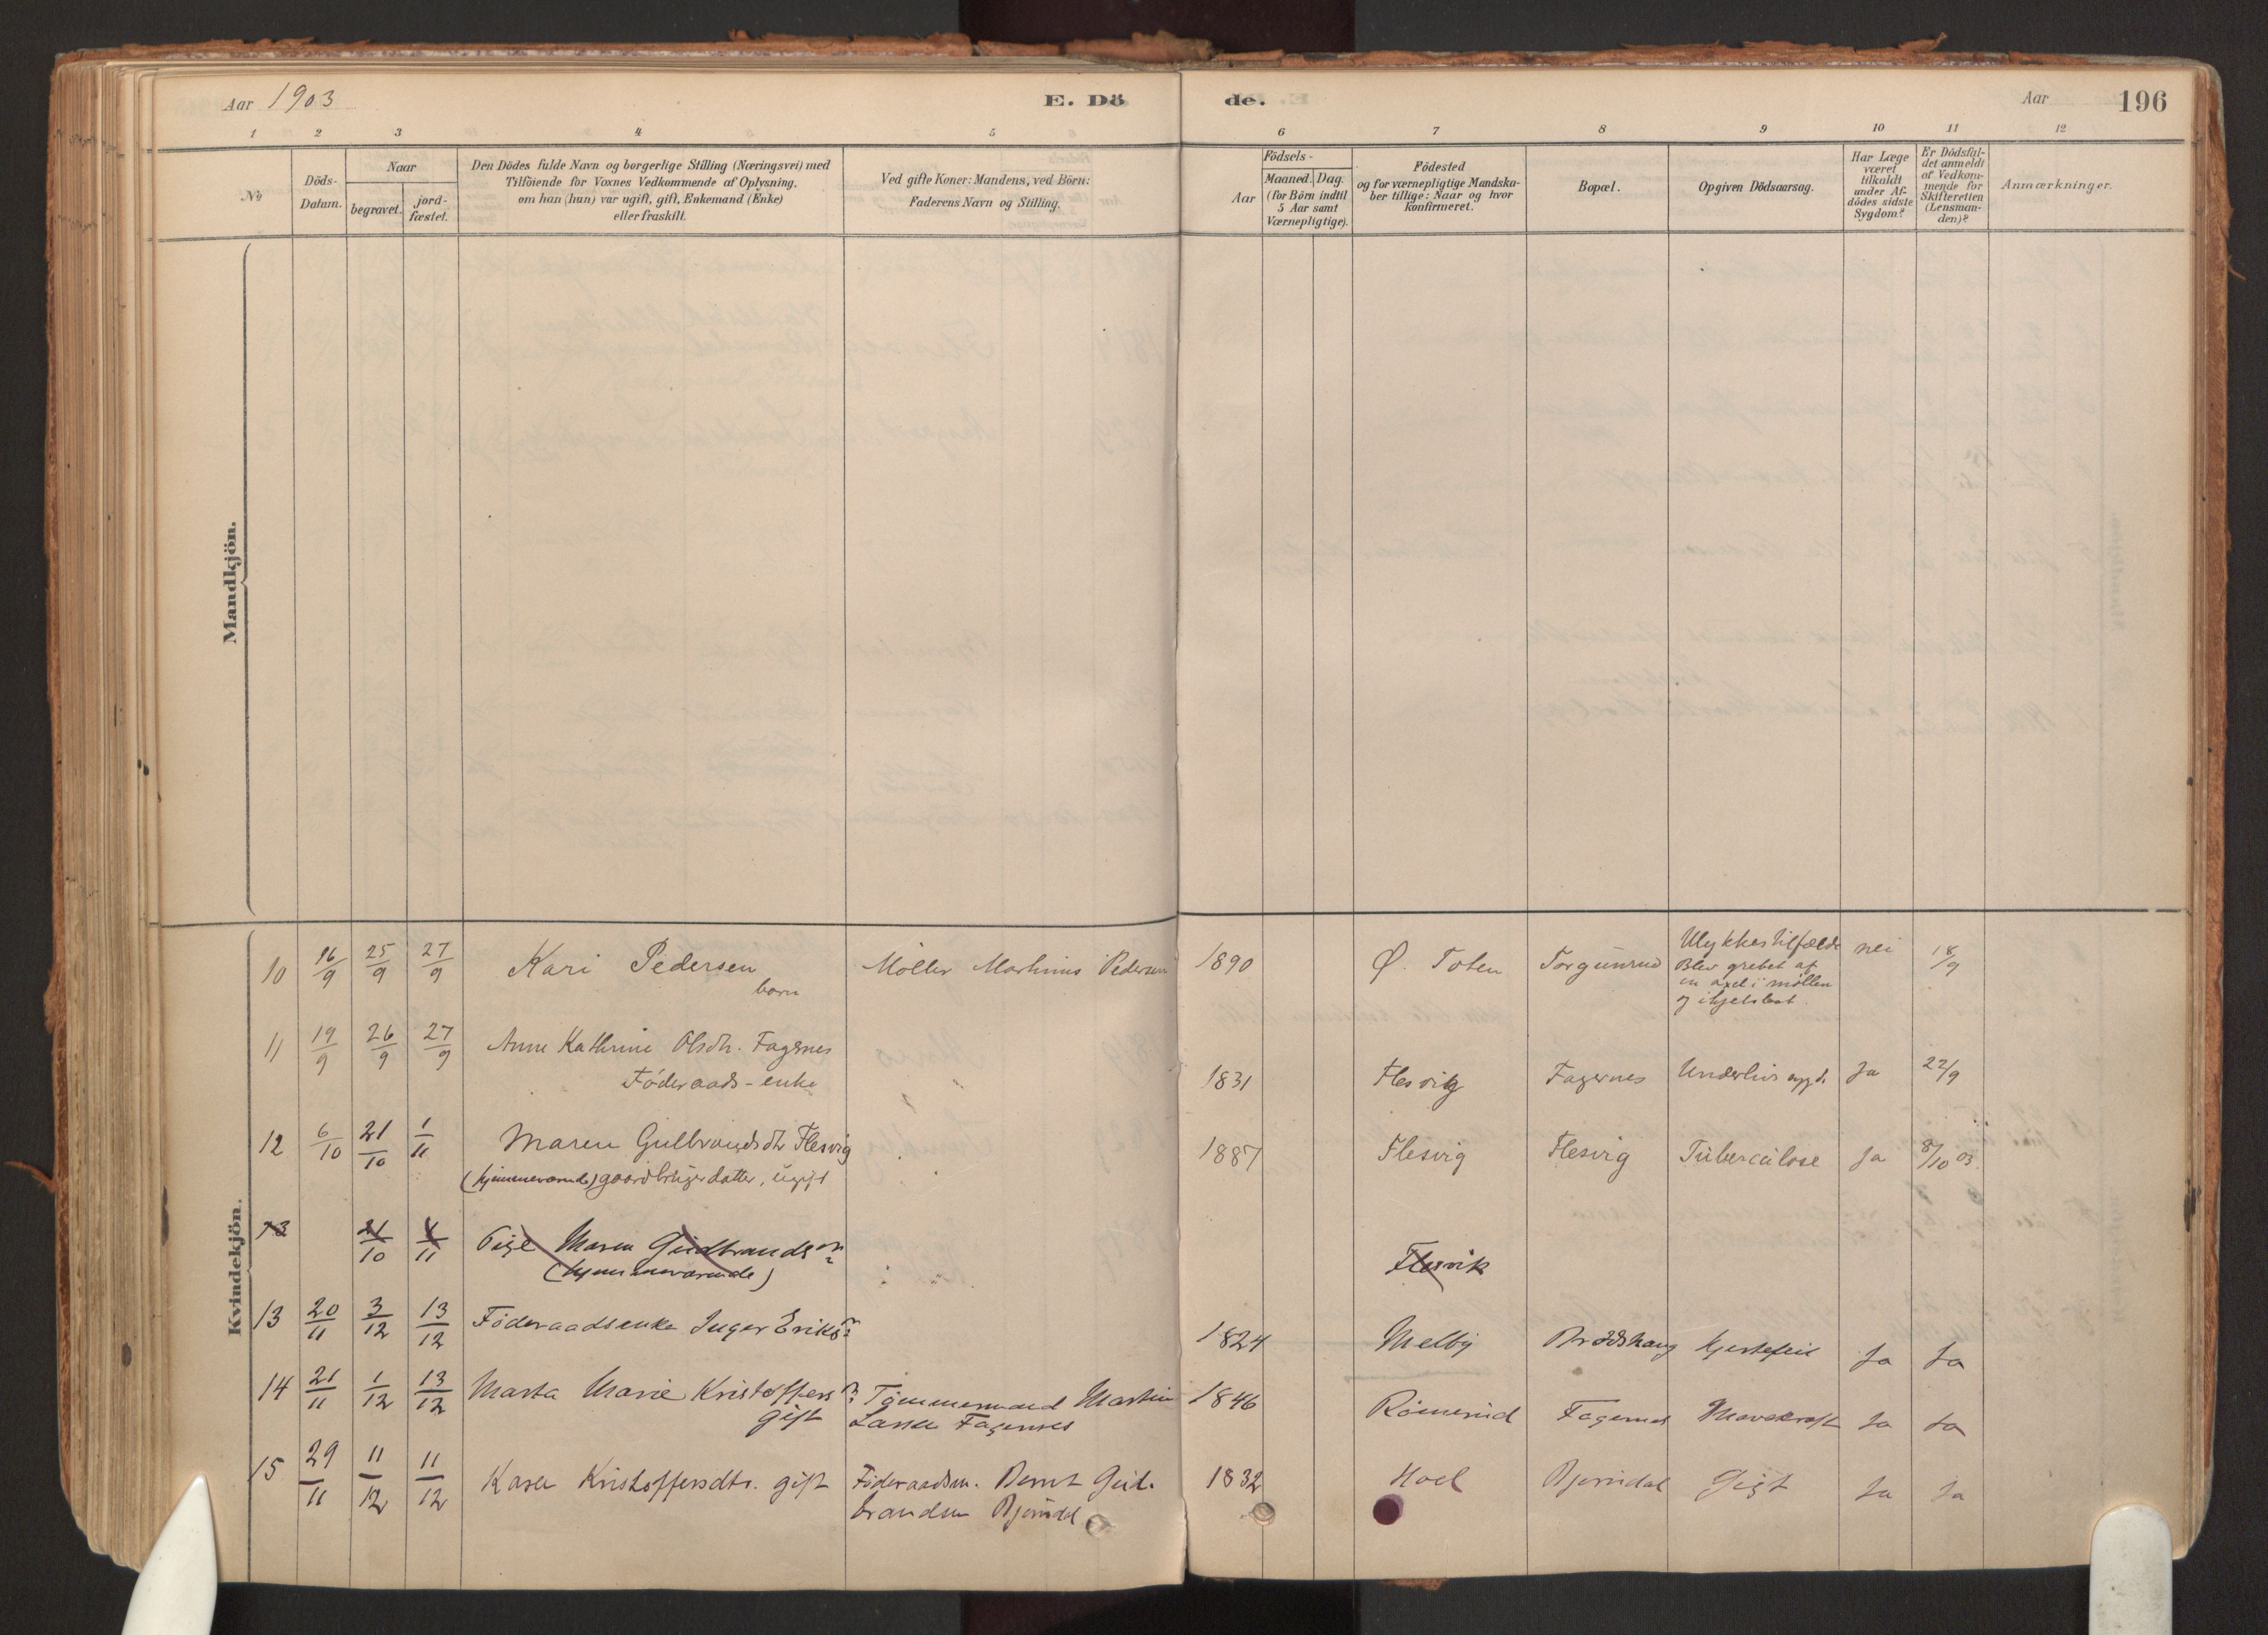 Aar 1903
E. Dö
de.
Aar
196
1 2 3 4 5 6 7 8 9 10 11 12
No
Döds-
Datum.
Naar
begravet.
jord-
fæstet.
Den Dödes fulde Navn og borgerlige Stilling (Næringsvei) med
Tilföiende for Voxnes Vedkommende af Oplysning.
om han (hun) var ugift, gift, Enkemand (Enke)
eller fraskilt.
Ved gifte Koner: Mandens, ved Börn:
Faderens Navn og Stilling.
Aar
Födsels-
Maaned. Dag.
(for Börn indtil
5 Aar samt
Værnepligtige).
Födested
og for værnepligtige Mandska-
ber tillige: Naar og hvor
Konfirmeret.
Bopæl.
Opgiven Dödsaarsag.
Har Læge
været
tilkaldt
under Af-
dödes sidste
Sygdom?
Er Dödsfal-
det anmeldt
af Vedkom-
mende for
Skifteretten
(Lensman-
den)?
Anmærkninger.
Mandkjön.
Kvindekjön.
10 16/9 25/9 27/9 Kari Pedersen Möller Martinus Pedersen 1890 Ø. Toten Torgunrud Ulykkestilfælde nei 18/9
barn
Blev grebet af
en axel i möllen
og ihjelslaat.
11 19/9 26/9 27/9 Anne Kathrine Olsdtr. Fagernes
Föderaads-enke 1831 Flesvig Fagernes Underlivssygd. Ja 22/9
12 6/10 21/10 1/11 Maren Gulbrandsdtr Flesvig 1887 Flesvig Flesvig Tuberculose Ja 8/10 03.
(hjemmeværende) gaardbrugerdatter, ugift
13 21/10 1/11 Pige Maren Gudbrandsdtr Flesvik
(hjemmeværende)
13 20/11 3/12 13/12 Föderaadsenke Inger Eriksdtr 1824 Melby Brødshaug hjertefeil Ja Ja
14 21/11 1/12 13/12 Marta Marie Kristoffersdtr Tømmermand Martin 1846 Römerud Fagernes Mavekræft Ja Ja
gift Larsen Fagernes
15 29/11 11/12 11/12 Karen Kristoffersdtr. gift Föderaadsm. Bernt Gul- 1832 Hoel Bjørndal Gigt Ja Ja
brandsen Bjørndal